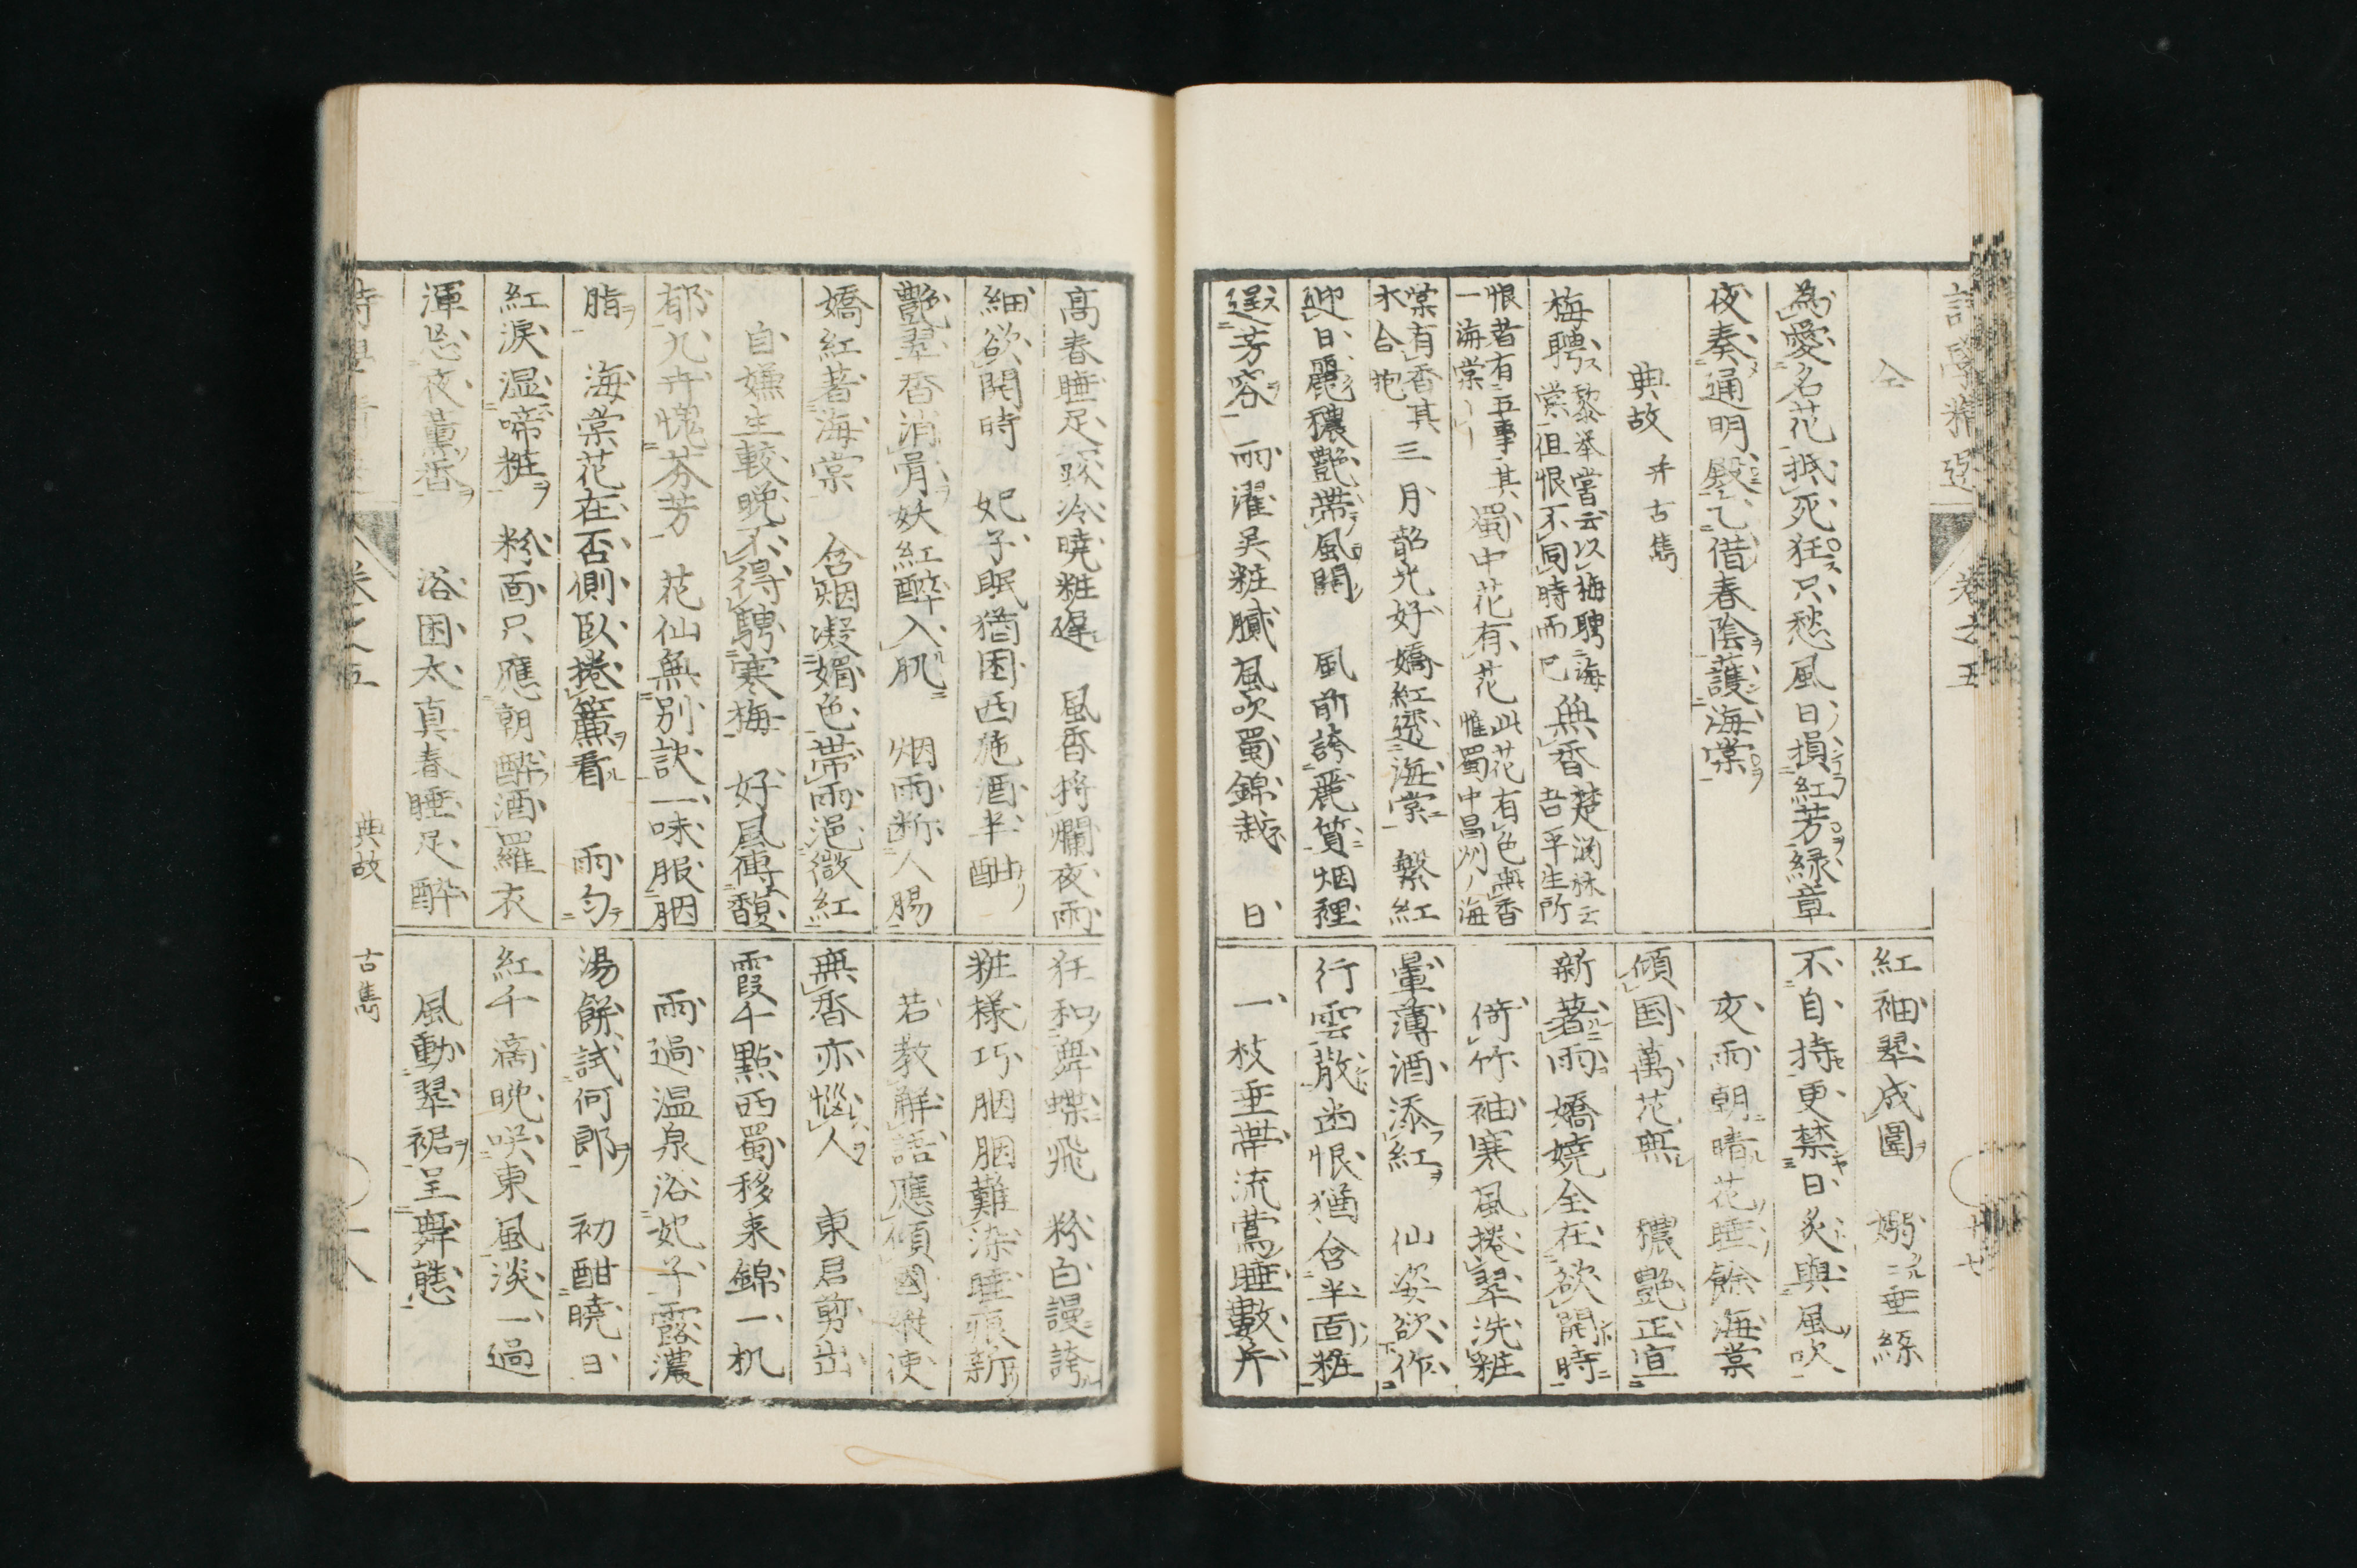 詩學精選 卷之五
仝
為愛名花抵死狂只愁風日損紅芳緑章
夜奏通明殿乞借春陰護海棠
典故 并古雋
梅聘 黎举嘗云以梅聘海
棠但恨不同時而已 無香 楚淵材云
吾平生所
恨者有五事其
一海棠 蜀中花有花 此花有色無香
惟蜀中昌州海
棠有香其
木合抱 三月韶光好嬌紅透海棠 繁紅
迎日麗穠艶帶風開 風前誇麗質烟裡
逞芳容 雨濯呉粧膩風吹蜀錦裁 日
紅袖翠成圍 嫋々垂絲
不自持更禁日炙與風吹
夜雨朝晴花睡餘海棠
傾国萬花無 穠艶正宜
新著雨嬌嬈全在欲開時
倚竹袖寒風捲翠洗粧
暈薄酒添紅 仙姿欲作
行雲散幽恨猶含半面粧
一枝垂帶流鶯睡數片
高春睡足 冷曉粧遲 風香將爛夜雨
細欲開時 妃子眠猶困西施酒半酣
艶翠香消骨妖紅醉入肌 烟雨断人腸
嬌紅著海棠 含烟凝媚色帶雨浥微紅
自嫌生較晩不得聘寒梅 好風傳馥
郁九卉愧芬芳 花仙無別訣一味服胭
脂 海棠花在否側臥捲簾看 雨匀
紅涙湿啼粧 粉面只應朝醉酒羅衣
渾忘夜薫香 浴困太真春睡足醉
狂和舞蝶飛 粉白謾誇
粧樣巧胭胭難染睡痕新
若教解語應傾國 使
無香亦惱人 東君剪出
霞千點西蜀移来錦一机
雨過温泉浴妃子露濃
湯餅試何郎 初酣曉日
紅千滴晩咲東風淡一過
風動翠裾呈舞態
卷之五 典故 古雋 十八